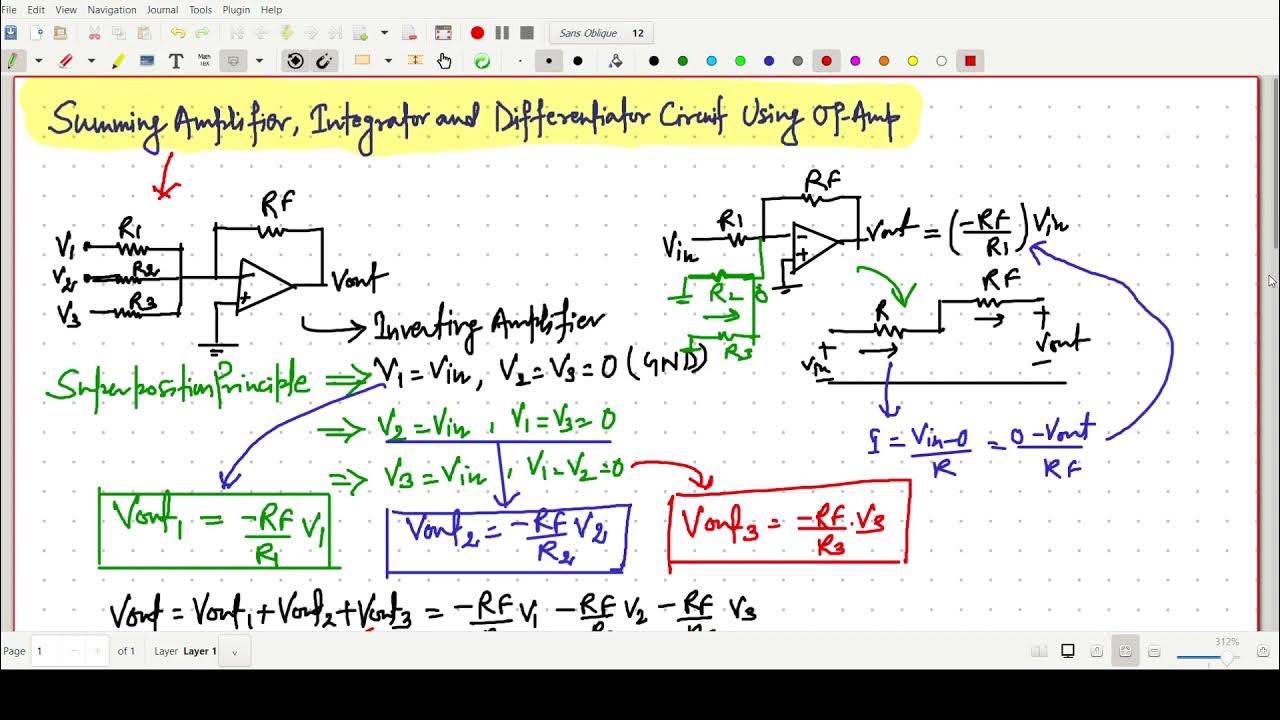 File Edit View Navigation Journal Tools Plugin Help
Sans Oblique 12
T Math TEX
Summing Amplifier, Integrator and Differentiator Circuit Using OP-Amp
RF
V1 R1
V2 R2
V3 R3
+
Vout
Inverting Amplifier
RF
R1
Vin
- +
Vout = (-RF/R1) Vin
R2 0
R3
R RF
+ Vin -
+ Vout -
I = Vin-0/R = 0-Vout/RF
Superposition Principle ⇒ V1 = Vin, V2 = V3 = 0 (GND)
⇒ V2 = Vin, V1 = V3 = 0
⇒ V3 = Vin, V1 = V2 = 0
Vout1 = -RF/R1 V1
Vout2 = -RF/R2 V2
Vout3 = -RF/R3 . V3
Vout = Vout1 + Vout2 + Vout3 = -RF V1 - RF V2 - RF V3
Page 1 of 1 Layer Layer 1
312%